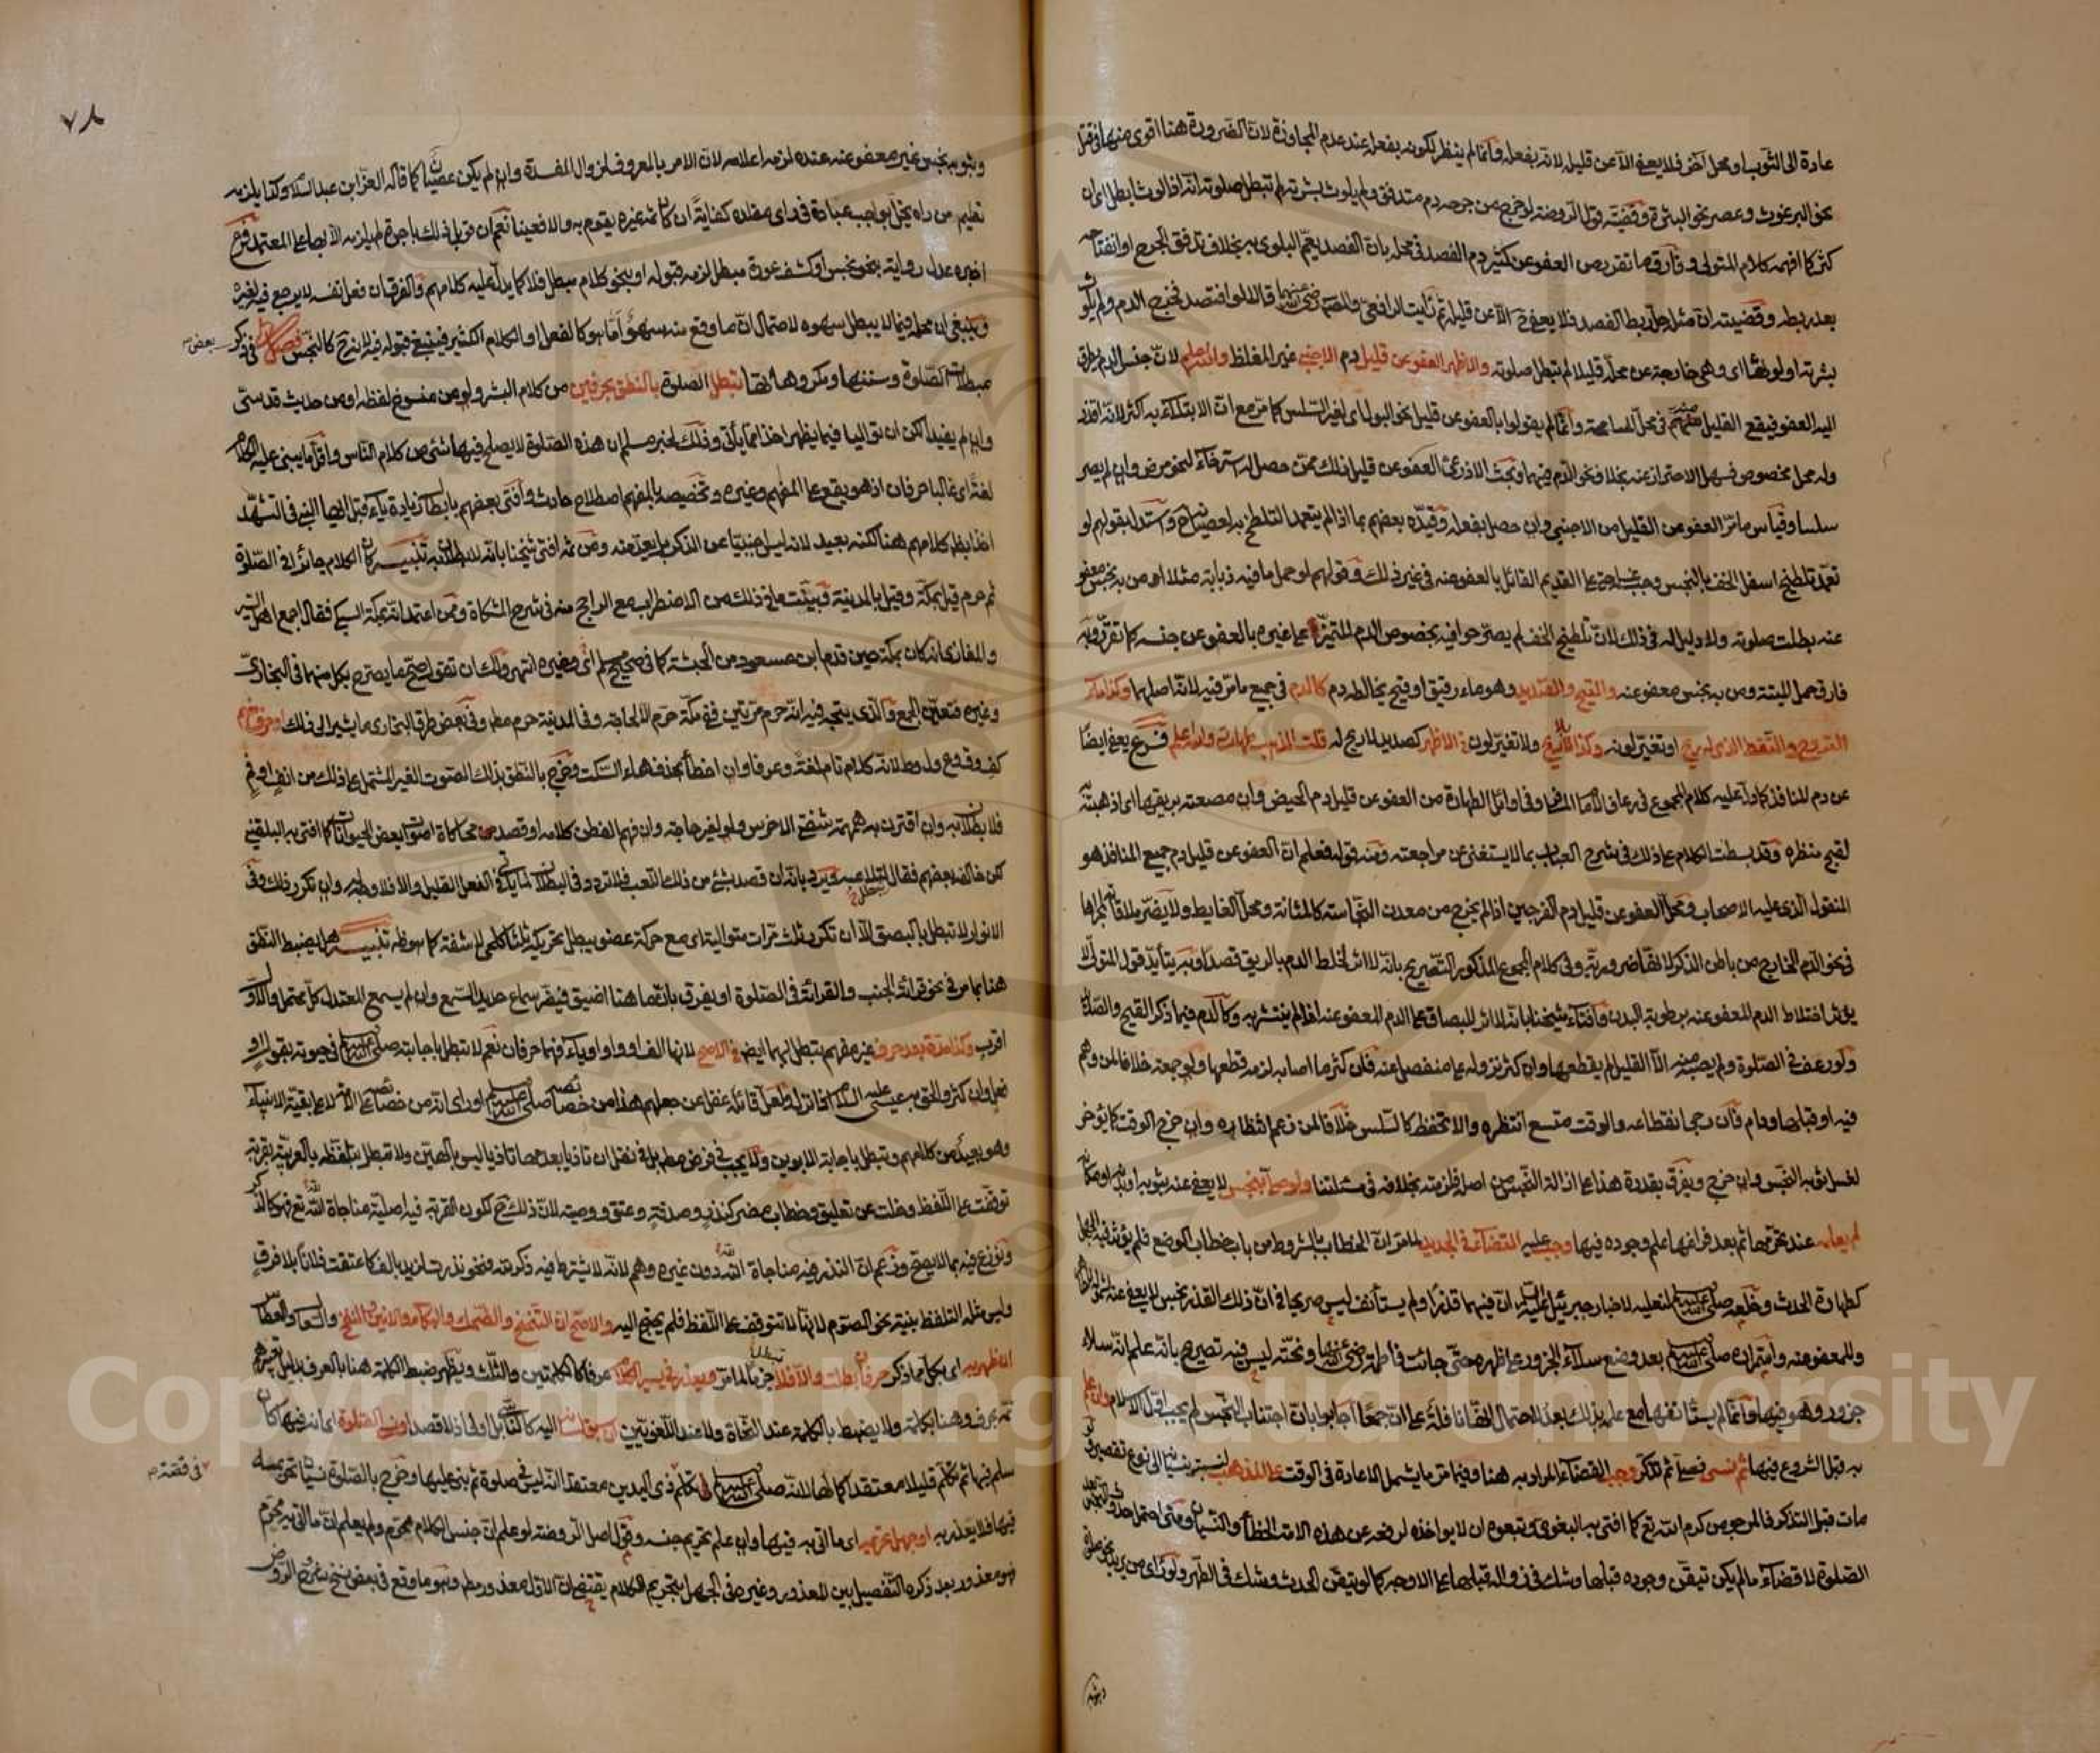 عادة الى الثوب او محل آخر فلا يعفى الا عن قليله لانه بفعله وانما لم ينظر لكونه بفعله عند عدم المجاوزة لان الضرورة هنا اقوى منها في قتل
نحو البرغوث وعصر نحو البثرة وقضية قول الروضة لو خرج من جرحه دم متدفق ولم يلوث بشرته لم تبطل صلوته انه اذا لوث ابطل اى ان
كثر كما افهمه كلام المتولى وفارق ما تقرر من العفو عن كثير دم الفصد في محله بان الفصد يعم البلوى به بخلاف تدفق الجرح او انفتاحه
بعد ربطه وقضيته ان مثله حل ربط الفصد فلا يعفى ح الا عن قليله ثم رأيت الرافعى والمصنف قالا لو افتصد فخرج الدم ولم يلوث
بشرته او لوثها اى وهى خارجة عن محله قليلا لم تبطل صلوته والاظهر العفو عن قليل دم الاجنبى غير المغلظ والله اعلم لان جنس الدم يتطرق
اليه العفو فيقع القليل منه في محل المسامحة وانما لم يقولوا بالعفو عن قليل نحو البول اى لغير السلس كما مر مع ان الابتلاء به اكثر لانه اقذر
وله محل مخصوص فسهل الاحتراز عنه بخلاف نحو الدم فيهما وبحث الاذرعى العفو عن قليل ذلك ممن حصل له استرخاء لنحو مرض وان لم يصر
سلسا وقياس ما مر العفو عن القليل من الاجنبى وان حصل بفعله وقيده بعضهم بما اذا لم يتعمد التلطخ به لعصيانه ح واستدل بقولهم لو
تعمد تلطيخ اسفل الخف بالنجس وجب غسله حتى على القديم القائل بالعفو عنه في غير ذلك وقولهم لو حمل ما فيه ذبابة مثلا او من به نجس معفو
عنه بطلت صلوته ولا دليل له في ذلك لان تلطيخ الخف لم يصرحوا فيه بخصوص الدم المتميز على غيره بالعفو عن جنسه كما تقرر وبه
فارق حمل الميتة ومن به نجس معفو عنه والقيح والصديد وهو ماء رقيق او قيح يخالطه دم كالدم في جميع ما مر فيه لانه اصلهما وكذا ماء
القروح والنفط الذى له ريح او تغير لونه وكذا بلا ريح ولا تغير لون في الاظهر كصديد لا ريح له قلت المذهب طهارته والله اعلم فرع يعفى ايضا
عن دم المنافذ كما دل عليه كلام المجموع في رعاف الامام وفي اوائل الطهارة من العفو عن قليل دم الحيض وان مصعته بريقها اى اذهبته
لقبح منظره وقد بسطت الكلام على ذلك في شرح العباب بما لا يستغنى عن مراجعته ومنه قوله فعلم ان العفو عن قليل دم جميع المنافذ هو
المنقول الذى عليه الاصحاب ومحل العفو عن قليل دم الفرجين اذا لم يخرج من معدن النجاسة كالمثانة ومحل الغايط ولا يضر ملاقاته لمجراها
في نحو الدم الخارج من باطن الذكر وفي كلام المجموع المذكور التصريح بانه لا اثر لخلط الدم بالريق قصدا وبه يتأيد قول المتولى لا
يؤثر اختلاط الدم المعفو عنه برطوبة البدن وافتاء شيخنا بانه لا اثر للبصاق على الدم المعفو عنه اذا لم ينتشر به وكالدم فيما ذكر القيح والصديد
ولو رعف في الصلوة ولم يصبه منه الا القليل لم يقطعها وان كثر نزوله على منفصل عنه فان كثر ما اصابه لزمه قطعها ولو جمعة خلافا لمن وهم
فيه او قبلها ودام فان رجى انقطاعه والوقت متسع انتظره والا تحفظ كالسلس خلافا لمن زعم انتظاره وان خرج الوقت كما يؤخر
لغسل ثوبه النجس وان خرج ويفرق بقدرة هذا على ازالة النجس من اصله فلزمته بخلافه في مسئلتنا ولو صلى بنجس لا يعفى عنه بثوبه او بدنه او مكانه
لم يعلمه عند تحرمه ثم بعد فراغها علم وجوده فيها وجب عليه القضاء في الجديد لما مر ان الخطاب بالشروط من باب خطاب الوضع فلم يؤثر فيه الجهل
كطهارة الحدث وخلعه صلى الله عليه وسلم لنعليه لاخبار جبرئيل عليه السلام ان فيهما قذرا ولم يستأنف ليس صريحا في ان ذلك القذر نجس لا يعفى عنه لشموله للطاهر
وللمعفو عنه واستمراره صلى الله عليه وسلم بعد وضع سلاء الجزور على ظهره حتى جائت فاطمة رضى الله عنها ونحته ليس فيه تصريح بانه علم انه سلاء
جزور وهو فيها وانما لم يستأنفها مع علمه بذلك بعد لاحتمال انها نافلة على ان جمعا اجابوا بان اجتناب النجس لم يجب اول الاسلام وان علم
به قبل الشروع فيها ثم نسى فصلى ثم تذكر وجب القضاء المراد به هنا وفيما مر ما يشمل الاعادة في الوقت على المذهب لنسبته بنسيانه الى نوع تقصير ولو
مات قبل التذكر فالمرجو من كرم الله تع كما افتى به البغوى وتبعوه ان لا يؤاخذه لرفعه عن هذه الامة الخطأ والنسيان ومتى احتمل حدوث النجس بعد
الصلوة لا قضاء ما لم يكن تيقن وجوده قبلها وشك في زواله قبلها على الاوجه كما لو تيقن الحدث وشك في الطهر ولو رأى من يريد نحو صلوة
وبثوبه
٧٨
وبثوبه نجس غير معفو عنه عنده لزمه اعلامه لان الامر بالمعروف لزوال المفسدة وان لم يكن عصيان كما قاله العز ابن عبد السلام وكذا يلزمه
تعليم من رآه يخل بواجب عبادة في راى مقلده كفاية ان كان ثمه غيره يقوم به والا فعينا نعم ان قوبل ذلك باجرة لم يلزمه الا بها على المعتمد فرع
اخبره عدل رواية بنحو نجس او كشف عورة مبطل لزمه قبوله او بنحو كلام مبطل فلا كما يدل عليه كلامهم والفرق ان فعل نفسه لا يرجع فيه لغيره
وينبغى ان محله فيما لا يبطل سهوه لاحتمال ان ما وقع منه سهو اما هو كالفعل او الكلام الكثير فينبغى قبوله فيه لانه ح كالنجس فصل في ذكر بعض
مبطلات الصلوة وسننها ومكروهاتها تبطل الصلوة بالنطق بحرفين من كلام البشر ولو من منسوخ لفظه او من حديث قدسى
وان لم يفيدا لكن ان تواليا فيما يظهر اخذا مما يأتى وذلك لخبر مسلم ان هذه الصلوة لا يصلح فيها شئ من كلام الناس واقل ما يبنى عليه الكلام
لغة اى غالبا حرفان اذ هو يقع على المفهم وغيره وتخصيصه بالمفهم اصطلاح حادث وافتى بعضهم بابطال زيادة ياء قبل ايها النبى في التشهد
اخذا بظاهر كلامهم هنا لكنه بعيد لانه ليس اجنبيا عن الذكر بل يعد منه ومن ثم افتى شيخنا بانه لا بطلان به تنبيه كان الكلام جائزا في الصلوة
ثم حرم قيل بمكة وقيل بالمدينة وبينت ما في ذلك من الاضطراب مع الراجح منه في شرح المشكاة وممن اعتمد انه بمكة السبكى فقال اجمع اهل السير
والمغازى انه كان بمكة حين قدم ابن مسعود من الحبشة كما في صحيح مسلم اى وغيره انتهى ولك ان تقول صح ما يصرح بكل منهما في البخارى
وغيره فتعين الجمع والذى يتجه فيه انه حرم مرتين ففى مكة حرم الا لحاجة وفي المدينة حرم مطلقا وفي بعض طرق البخارى ما يشير الى ذلك او حرف مفهم
كف وق وع ول وط لانه كلام تام لغة وعرفا وان اخطأ بحذف هاء السكت وخرج بالنطق بذلك الصوت الغير المشتمل على ذلك من انف او فم
فلا بطلان به وان اقترنت به همهمة شفتى الاخرس ولو لغير حاجة وان فهم الفطن كلامه او قصد محاكاة اصوات بعض الحيوانات كما افتى به البلقينى
لكن خالفه بعضهم فقال ويرد بانه ان قصد بشئ من ذلك اللعب فلا تردد في البطلان لما يأتى في الفعل القليل والا فلا وجه له وان تكرر ذلك وفى
الانوار لا تبطل بالبصق الا ان تكرر ثلث مرات متوالية اى مع حركة عضو يبطل تحريكه ثلثا كلحى لا شفة كما هو ظ تنبيه هل يضبط النطق
هنا بما مر في نحو قرائة الجنب والقرائة في الصلوة او يفرق بان ما هنا اضيق فيضر سماع حديد السمع وان لم يسمع المعتدل كل محتمل والاول
اقرب وكذا مدة بعد حرف غير مفهم تبطل بهما ايضا في الاصح لانها الف او واو او ياء فهما حرفان نعم لا تبطل باجابته صلى الله عليه وسلم في حيوته بقول او
فعل وان كثر والحق به عيسى عليه السلام اذا نزل ولعل قائله غفل عن جعلهم هذا من خصائصه صلى الله عليه وسلم او راى انه من خصائصه على الامة لا على بقية الانبياء
وهو بعيد من كلامهم وتبطل باجابة الابوين ولا يجب في فرض مطلقا بل في نفل ان تاذيا بعدمها تاذيا ليس بالهين ولا تبطل بتلفظه بالعربية بقربة
توقفت على اللفظ وخلت عن تعليق وخطاب مضر كنذر وصدقة وعتق ووصية لان ذلك ح لكون القربة فيه اصلية مناجاة لله تع فهو كالذكر
ونوزع فيه بما لا يصح وزعم ان النذر فيه مناجاة الله دون غيره وهم لانه لا يشترط فيه ذكر لله فنحو نذرت لزيد بالف كاعتقت فلانا بلا فرق
وليس مثله التلفظ بنية نحو الصوم لانها لا تتوقف على اللفظ فلم يحتج اليه والاصح ان التنحنح والضحك والبكاء والانين والنفخ والسعال والعطاس
ان ظهر به اى بكل مما ذكر حرفان بطلت والا فلا جزما لما مر ويعذر في يسير الكلام عرفا كالكلمتين والثلث ويظهر ضبط الكلمة هنا بالعرف بدليل تعبيرهم
ثمه بحرف وهنا بكلمة ولا يضبط بالكلمة عند النحاة ولا عند اللغويين ان سبق لسانه اليه كالناسى بل اولى اذ لا قصد او نسى الصلوة اى انه فيها كان
سلم فيها ثم تكلم قليلا معتقدا كمالها لانه صلى الله عليه وسلم تكلم في قصة ذى اليدين معتقدا انه ليس في صلوة ثم بنى عليها وخرج بالصلوة نسيان تحريمه
فيها فلا يعذر به او جهل تحريمه اى ما اتى به فيها وان علم تحريم جنسه وقول اصل الروضة لو علم ان جنس الكلام محرم ولم يعلم ان ما اتى به محرم
فهو معذور بعد ذكره التفصيل بين المعذور وغيره في الجهل بتحريم الكلام يقتضى ان الاول معذور مطلقا وهو ما وقع في بعض نسخ شرح الروض